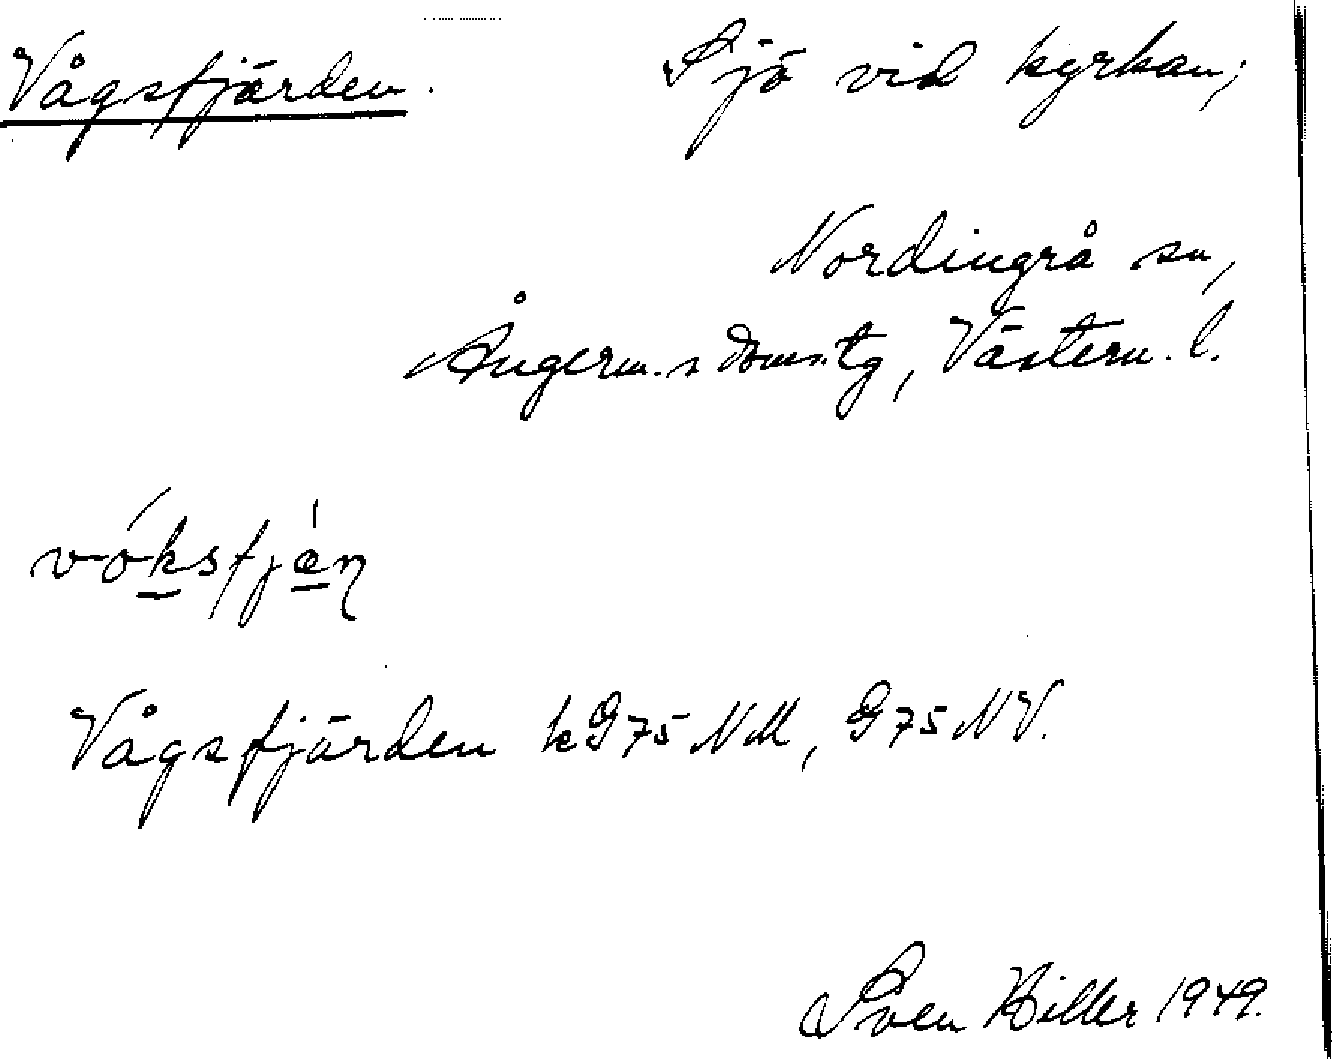 Vågsfjärden. Sjö vid kyrkan;
Nordingrå sn,
Ångerm.s doms.tg, Västern. l.
vókstjæ̀ṇ
Vågsfjärden kG75NM, G75NV.
Sven Hiller 1949.